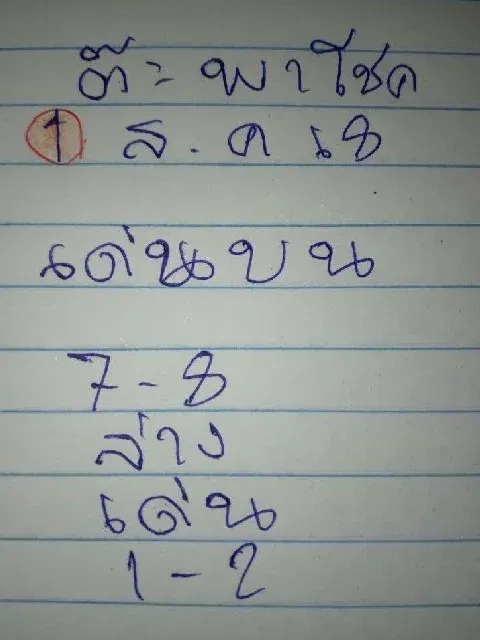 ต๊ะ พาโชค
1 ส.ค 68
เด่นบน
7-8
ล่าง
เด่น
1-2